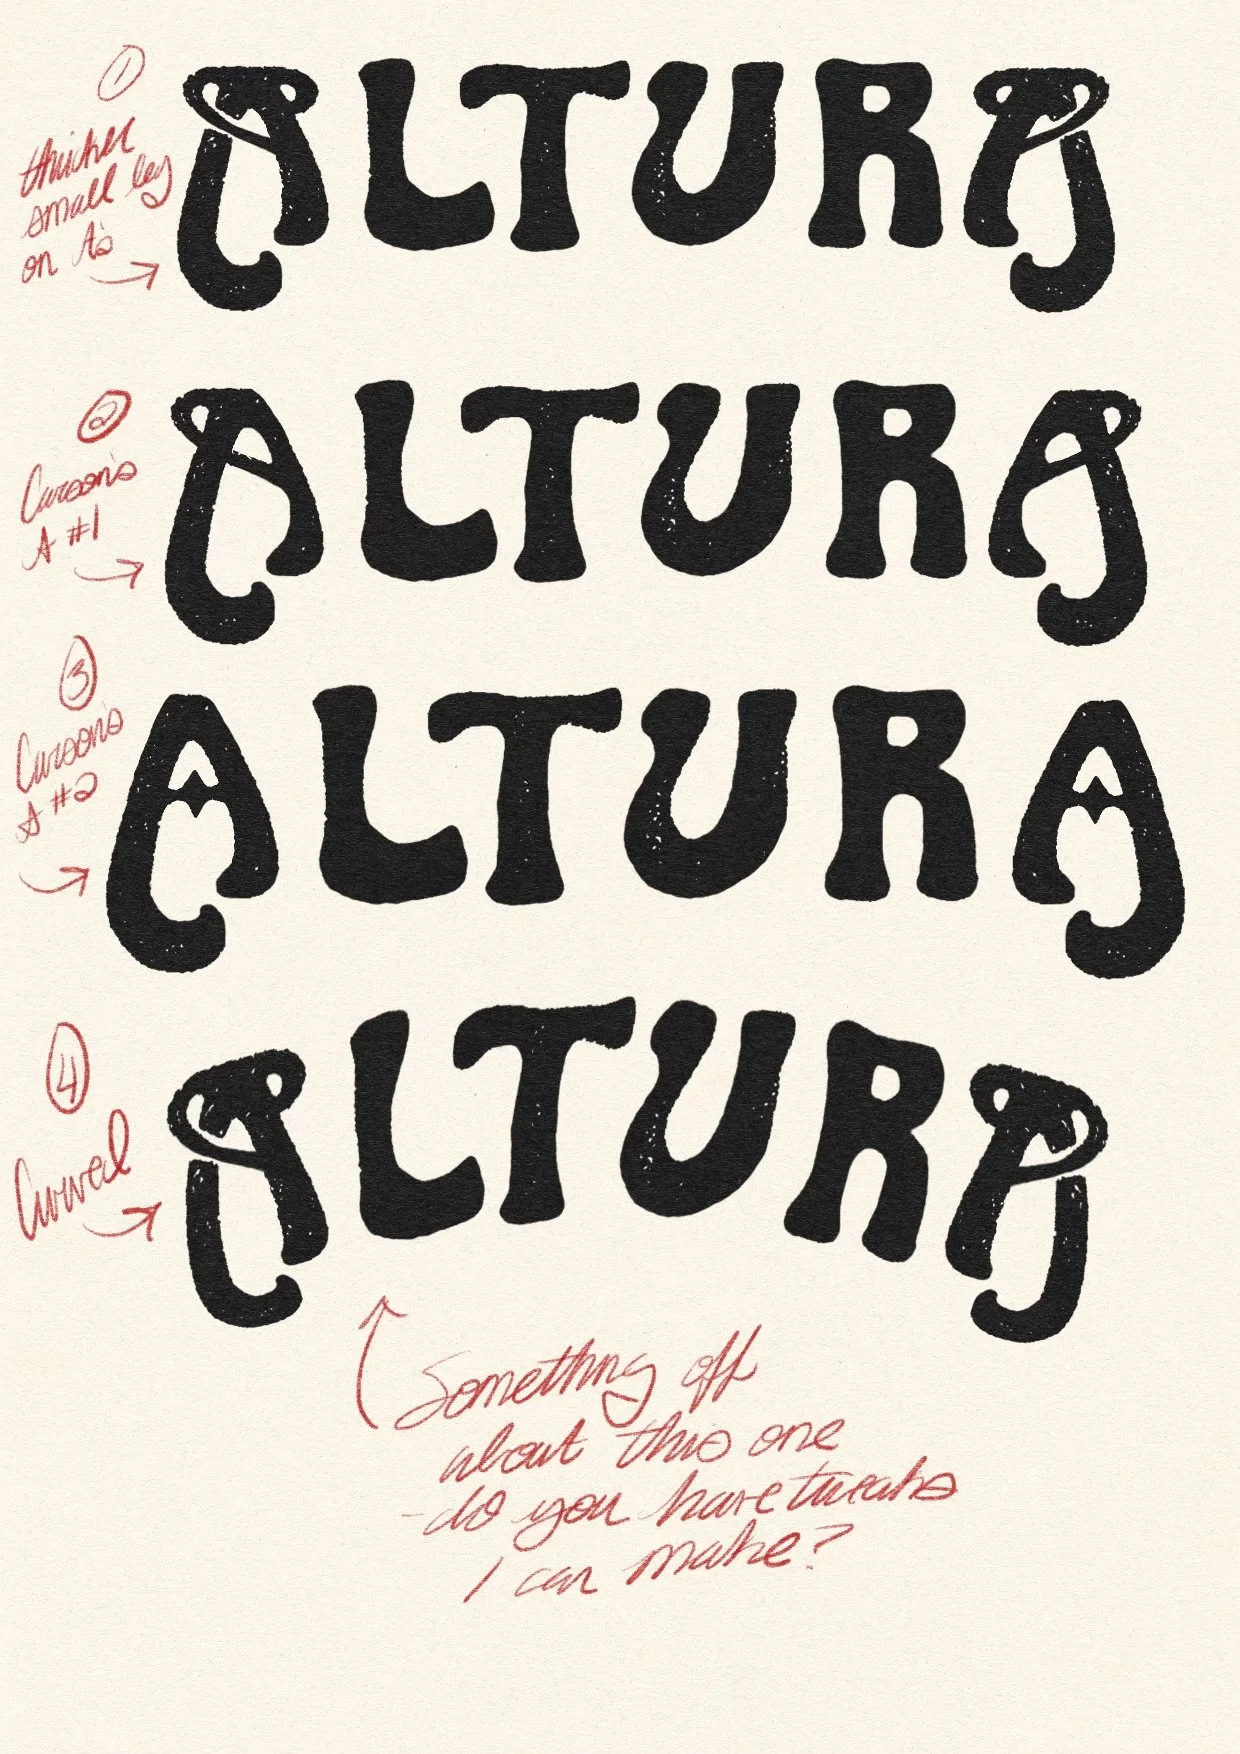 ①
thicker
small leg
on A's
ALTURA
②
Carson's
A #1
ALTURA
③
Carson's
A #2
ALTURA
④
Curved
ALTURA
Something off
about this one
- do you have tweaks
I can make?